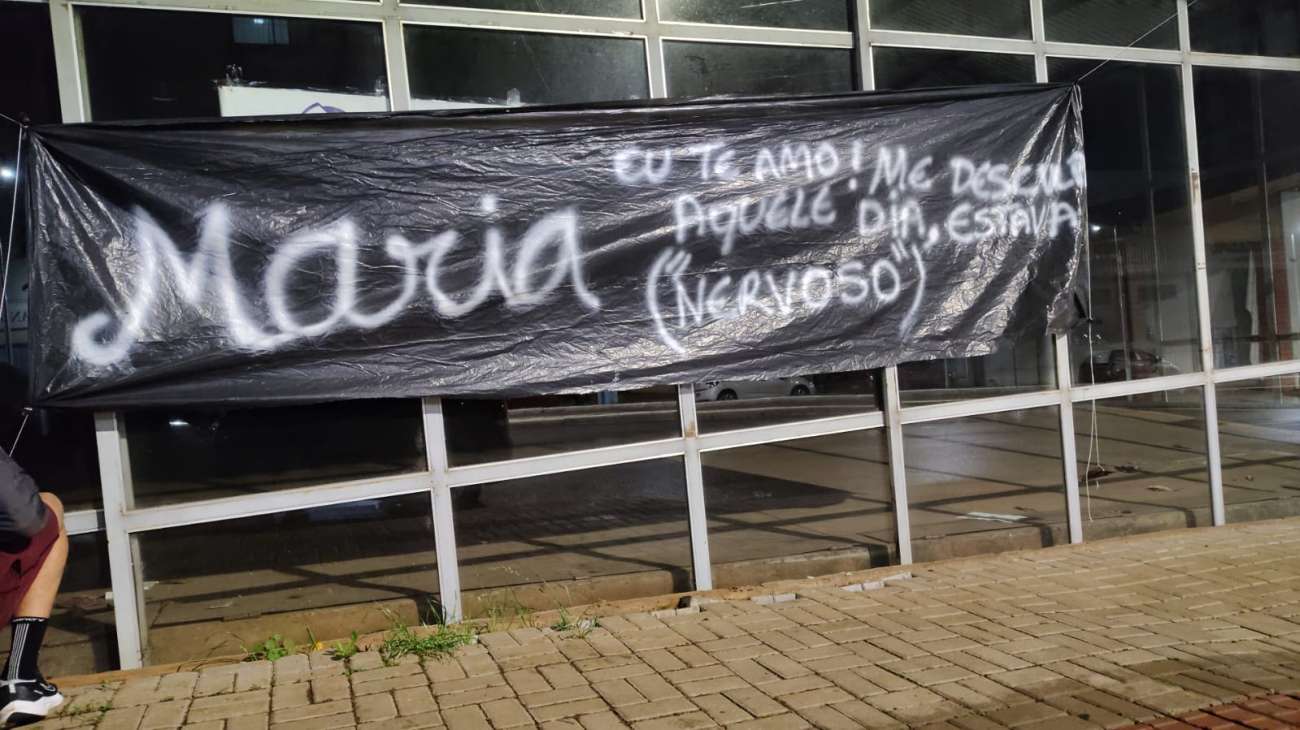 Maria
EU TE AMO! ME DESCULP
AQUELE DIA, ESTAVA
("NERVOSO")